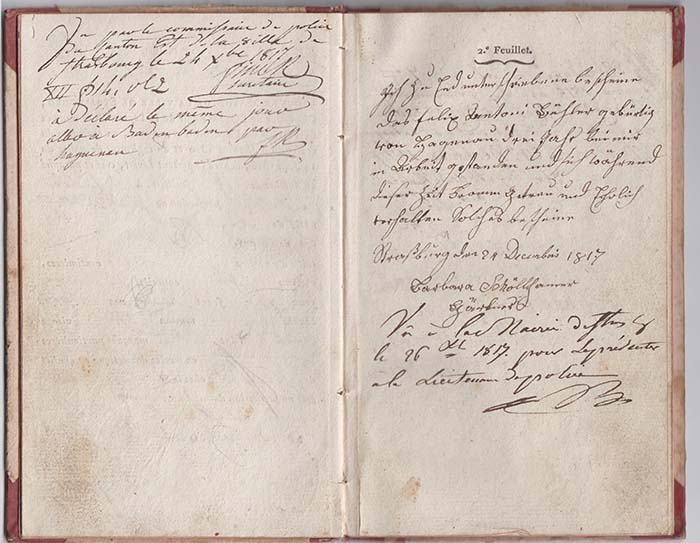 Vu par le commissaire de police
du Canton Est de la ville de
Strasbourg le 24 Xbre 1817
Secretaire
XII
à déclaré le même jour
aller à Baden baden par
haguenau
2.e Feuillet.
Ich zu End unterschriebene bescheine
das Felix Antoni Bähler gebürtig
von Hagenau drei Jahr bei mir
in Arbeit gestanden und sich während
dieser Zeit Fromm getreu und Ehrlich
verhalten Solches bescheine
Straßburg den 24 Decembris 1817
Barbara Schöllhamer
Vû à la Mairie de
le 26 Xbre 1817. pour se présenter
à la Lieutenance de police